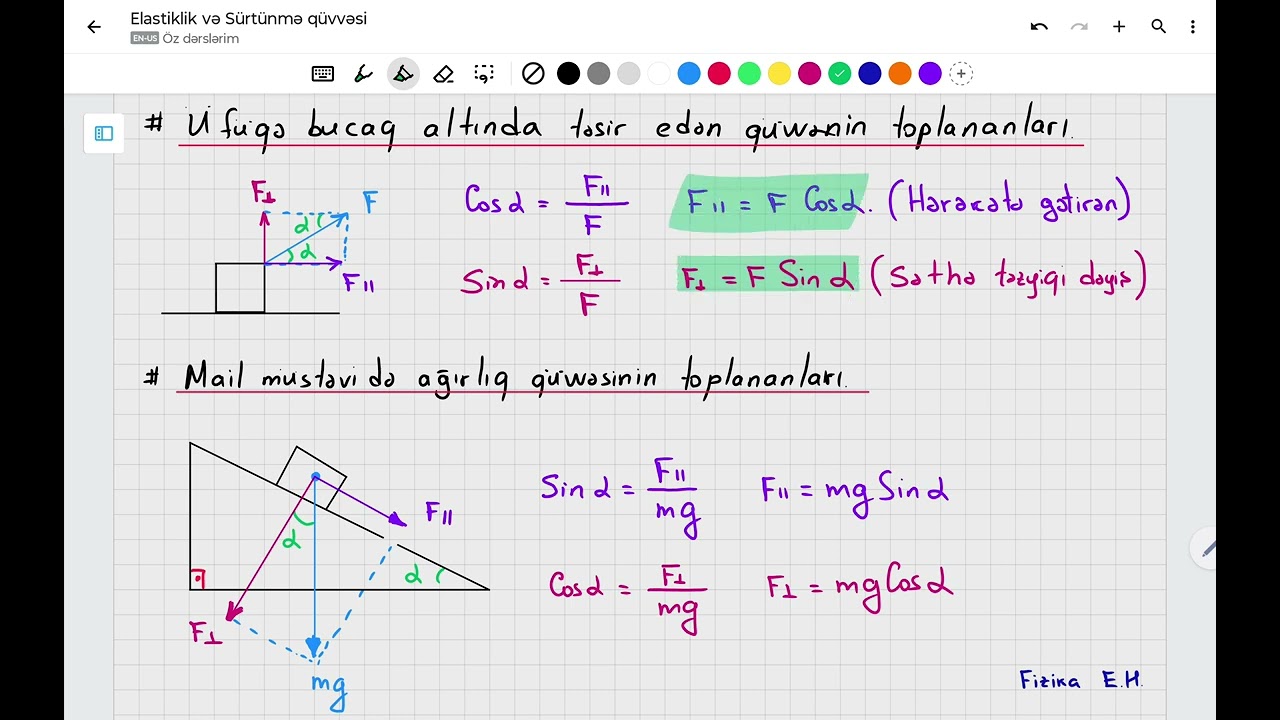 Elastiklik və Sürtünmə qüvvəsi
EN-US Öz dərslərim
# Üfüqə bucaq altında təsir edən qüvvənin toplananları.
F⊥
F
α
α
F||
Cosα = F|| / F
F|| = F Cosα. (Hərəkətə gətirən)
Sinα = F⊥ / F
F⊥ = F Sinα (Səthə təzyiqi dəyiş)
# Mail müstəvidə ağırlıq qüvvəsinin toplananları.
F||
α
α
F⊥
mg
Sinα = F|| / mg
F|| = mg Sinα
Cosα = F⊥ / mg
F⊥ = mg Cosα
Fizika E.H.